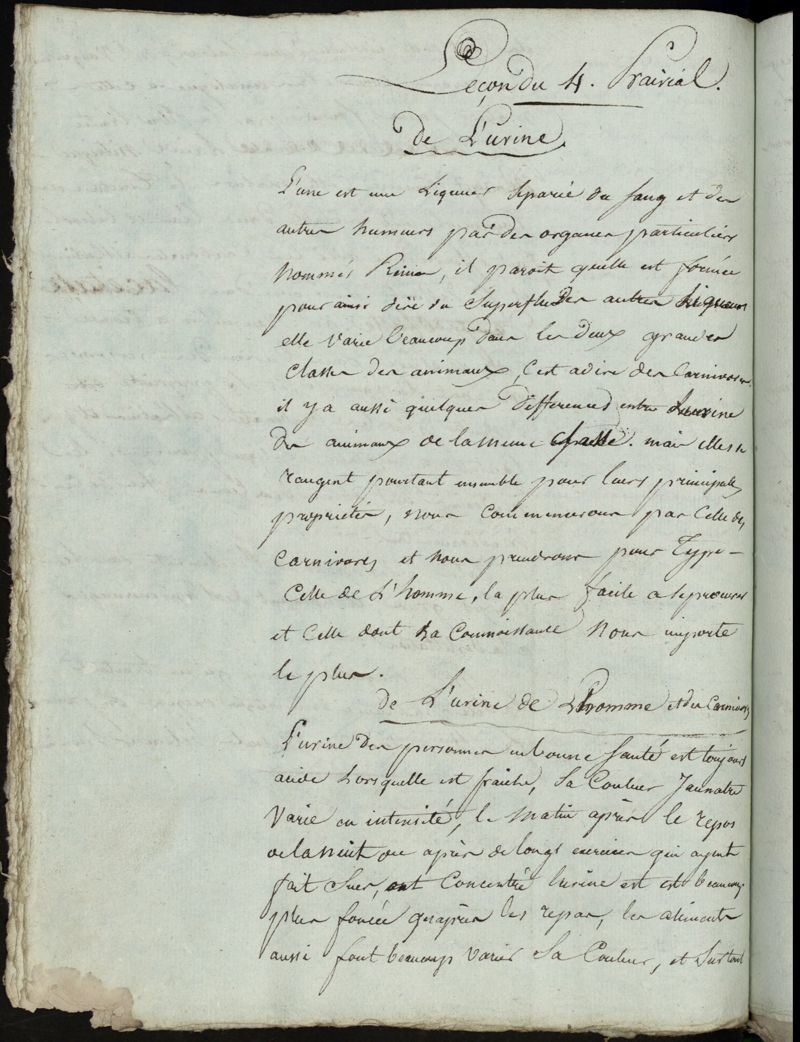 Leçon du 4. Prairial.
de L'urine
L'une est une Liqueur Separée du Sang et des
autres humeurs par des organes particuliers
nommés Reins, il paroit quelle est formée
pour ainsi dire du Superflu des autres Liqueurs
elle varie beaucoup dans les deux grandes
Classes des animaux, C'est adire des Carnivores
il y a aussi quelques differences entre L'urine
des animaux de la meme Classe. mais elles se
rangent pourtant ensemble pour leurs principales
propriétés, nous commencerons par Celle des
Carnivores et nous prendrons pour Type
Celle de L'homme, la plus facile a se procurer
et Celle dont La Connoissance nous importe
le plus.
de L'urine de L'homme et des Carnivores
L'urine des personnes en bonne Santé est toujours
acide Lorsquelle est fraiche, Sa Couleur Jaunatre
Varie en intensité, le matin après le repos
de la nuit ou après de longs exercices qui ayent
fait Suer, ont Concentré lurine est est beaucoup
plus foncée qu'après les repas, les aliments
aussi font beaucoup varier Sa Couleur, et Surtout